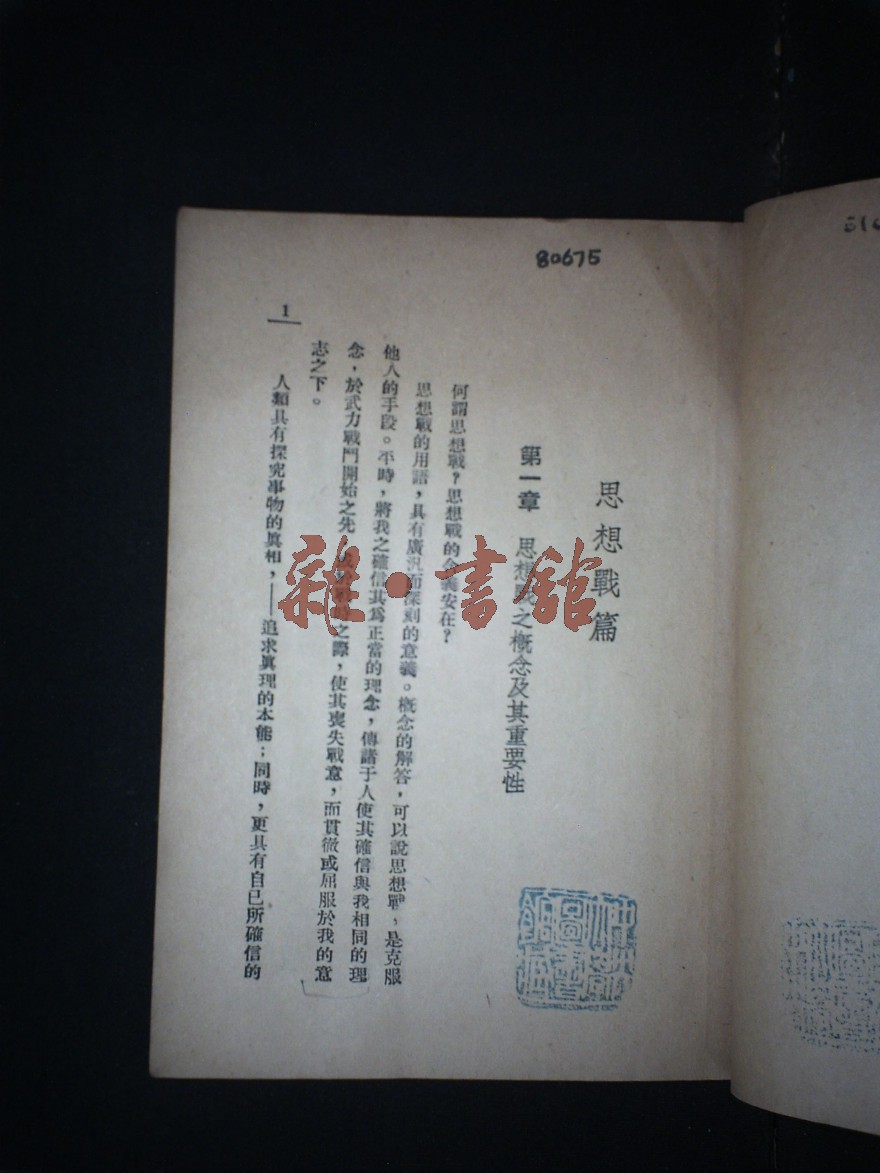 80675
思想戰篇
第一章 思想戰之概念及其重要性
何謂思想戰?思想戰的含義安在?
思想戰的用語,具有廣況而深刻的意義。概念的解答,可以說思想戰,是克服
他人的手段。平時,將我之確信其爲正當的理念,傳諸于人使其確信與我相同的理
念,於武力戰鬥開始之先 之際,使其喪失戰意,而貫徹或屈服於我的意
志之下。
人類具有探究事物的眞相,——追求眞理的本能;同時,更具有自己所確信的
1
雜·書館